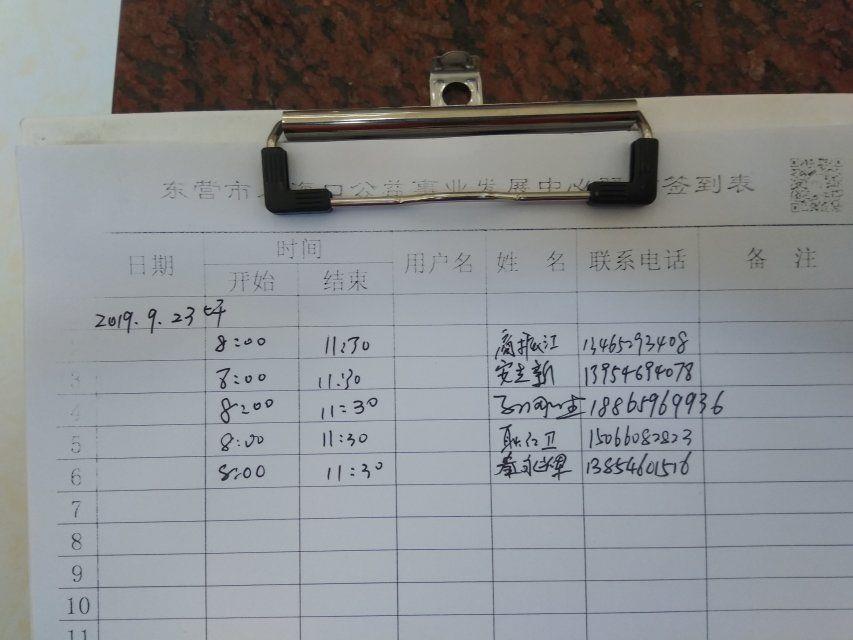 东营市 海口公益事业发展中心 签到表
日期 时间 用户名 姓 名 联系电话 备 注
开始 结束
2019.9.23 上午
8:00 11:30 13465293408
3 8:00 11:30 安立新 13954694078
4 8:00 11:30 18865969936
5 8:00 11:30 耿红卫 15066082823
6 8:00 11:30 13854601516
7
8
9
10
11